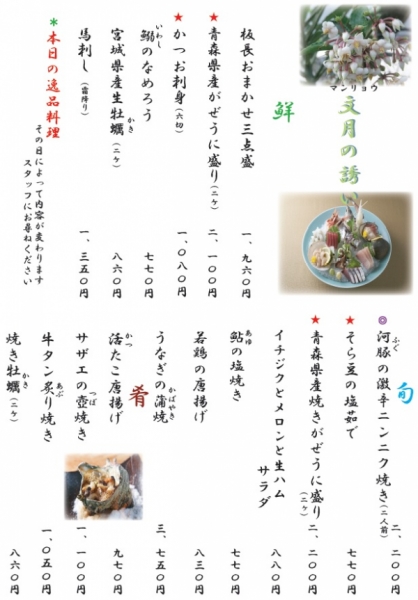 マンリョウ
文月の誘
鮮
板長おまかせ三点盛 一、九六〇円
★青森県産がぜうに盛り(二ケ) 二、一〇〇円
★かつお刺身(六切) 一、〇八〇円
鰯のなめろう 七七〇円
いわし
宮城県産生牡蠣(二ケ) 八六〇円
かき
馬刺し(霜降り) 一、三五〇円
＊本日の逸品料理
その日によって内容が変わります
スタッフにお尋ねください
旬
◎河豚の激辛ニンニク焼き(二人前) 二、二〇〇円
ふぐ
★そら豆の塩茹で 七七〇円
★青森県産焼きがぜうに盛り(二ケ) 二、二〇〇円
イチジクとメロンと生ハム
サラダ 八八〇円
鮎の塩焼き 七七〇円
あゆ
若鶏の唐揚げ 八三〇円
うなぎの蒲焼 三、五七〇円
かばやき
肴
活たこ唐揚げ 九七〇円
かつ
サザエの壺焼き 一、一〇〇円
つぼ
牛タン炙り焼き 一、〇五〇円
あぶ
焼き牡蠣(二ケ) 八六〇円
かき